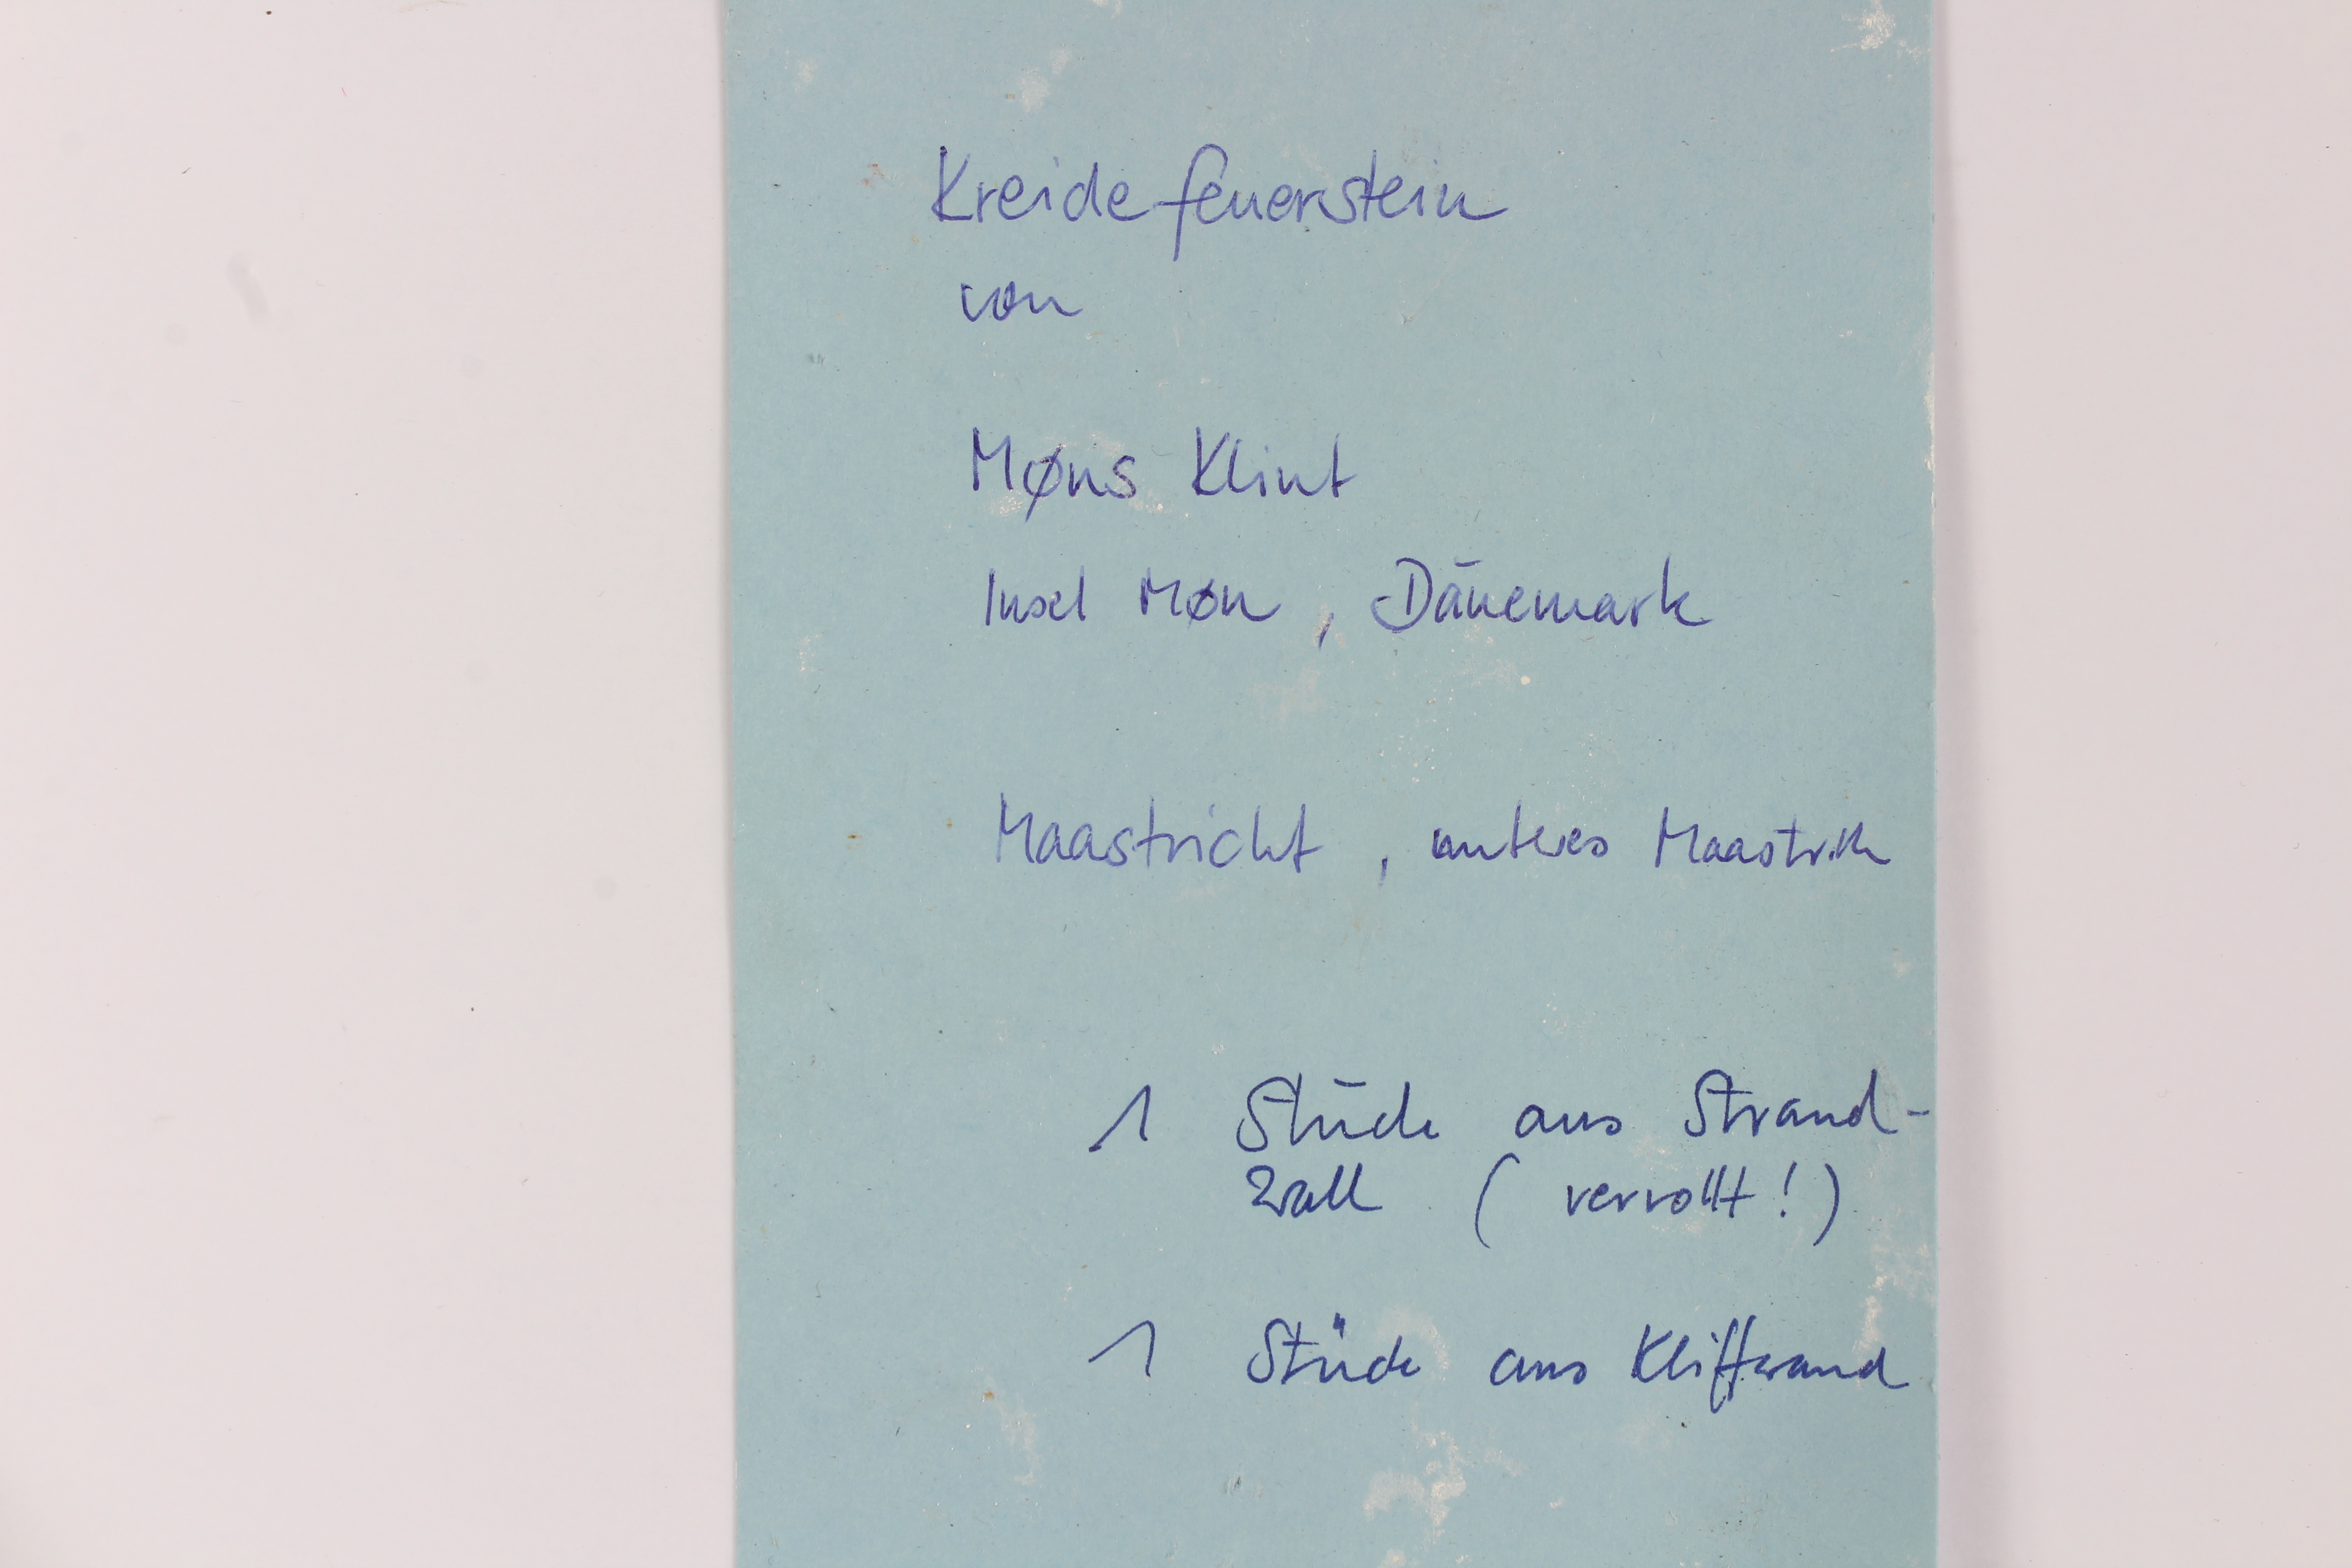 Kreidefeuerstein
von
Møns Klint
Insel Møn, Dänemark
Maastricht, unteres Maastrich
1 Stück aus Strand-
wall (verrollt!)
1 Stück aus Kliffwand